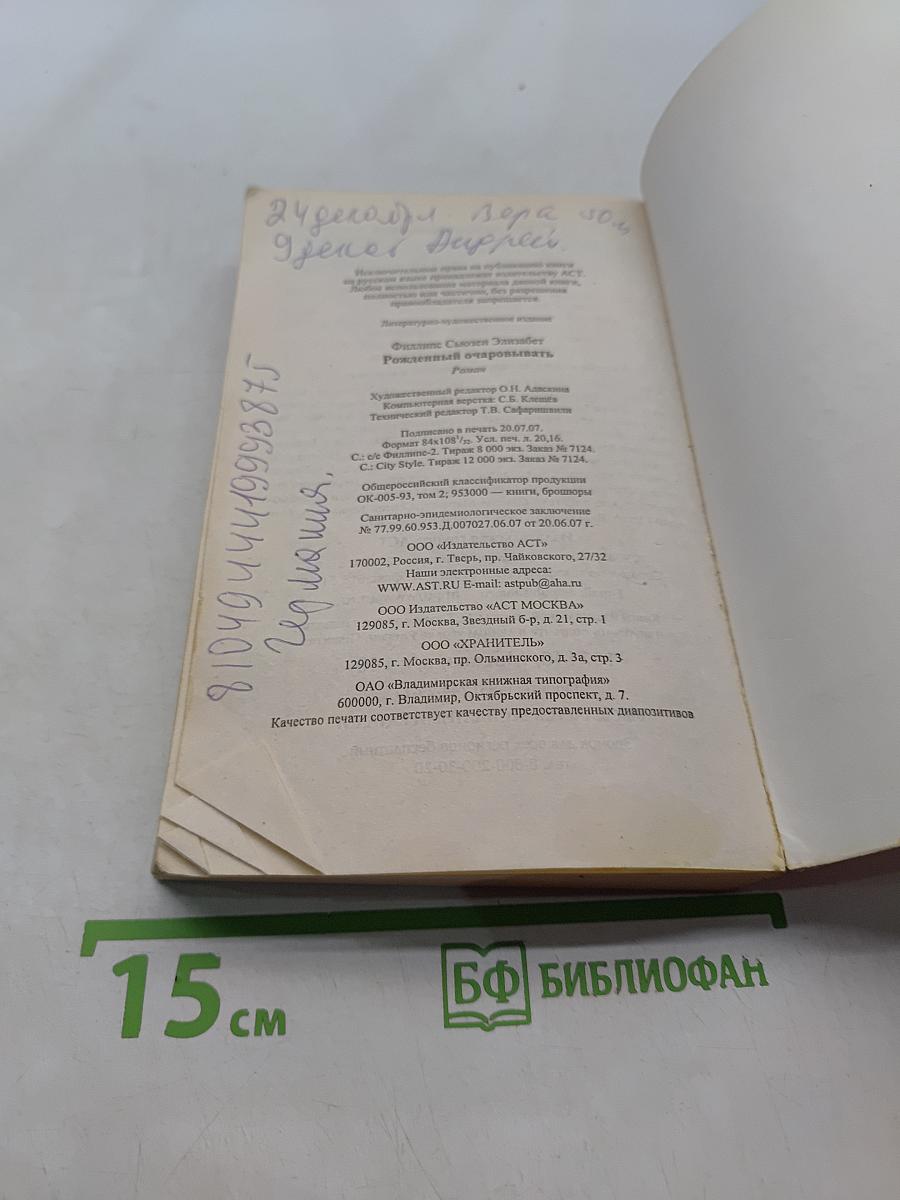 24 декабря Вера 50 л
9 декаб Андрей.
Исключительные права на публикацию книги
на русском языке принадлежат издательству АСТ.
Любое использование материала данной книги,
полностью или частично, без разрешения
правообладателя запрещается.
Литературно-художественное издание
Филлипс Сьюзен Элизабет
Рожденный очаровывать
Роман
Художественный редактор О.Н. Адаскина
Компьютерная верстка: С.Б. Клещёв
Технический редактор Т.В. Сафаришвили
Подписано в печать 20.07.07.
Формат 84x108¹/₃₂. Усл. печ. л. 20,16.
С.: с/с Филлипс-2. Тираж 8 000 экз. Заказ № 7124.
С.: City Style. Тираж 12 000 экз. Заказ № 7124.
Общероссийский классификатор продукции
ОК-005-93, том 2; 953000 — книги, брошюры
Санитарно-эпидемиологическое заключение
№ 77.99.60.953.Д.007027.06.07 от 20.06.07 г.
ООО «Издательство АСТ»
170002, Россия, г. Тверь, пр. Чайковского, 27/32
Наши электронные адреса:
WWW.AST.RU E-mail: astpub@aha.ru
ООО Издательство «АСТ МОСКВА»
129085, г. Москва, Звездный б-р, д. 21, стр. 1
ООО «ХРАНИТЕЛЬ»
129085, г. Москва, пр. Ольминского, д. 3а, стр. 3
ОАО «Владимирская книжная типография»
600000, г. Владимир, Октябрьский проспект, д. 7.
Качество печати соответствует качеству предоставленных диапозитивов
8104944419993875
Германия.
15 см
БФ БИБЛИОФАН